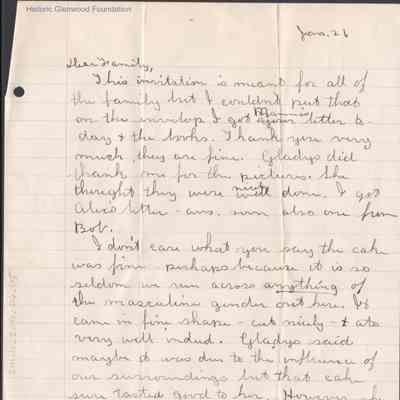 Historic Glenwood Foundation
Jan. 26
Dear Family,
This invitation is meant for all of
the family but I couldn't put that
on the envelop. I got Mamma's your letter to-
day & the books. Thank you very
much they are fine. Gladys did
thank me for the pictures. She
thought they were nicely well done. I got
Alice's letter - ans. soon also one from
Bob.
I don't care what you say the cake
was fine - perhaps because it is so
seldom we run across anything of
the masculine gender out here. It
came in fine shape - cut nicely - & ate
very well indeed. Gladys said
maybe it was due to the influence of
our surroundings but that cake
sure tasted good to her. However